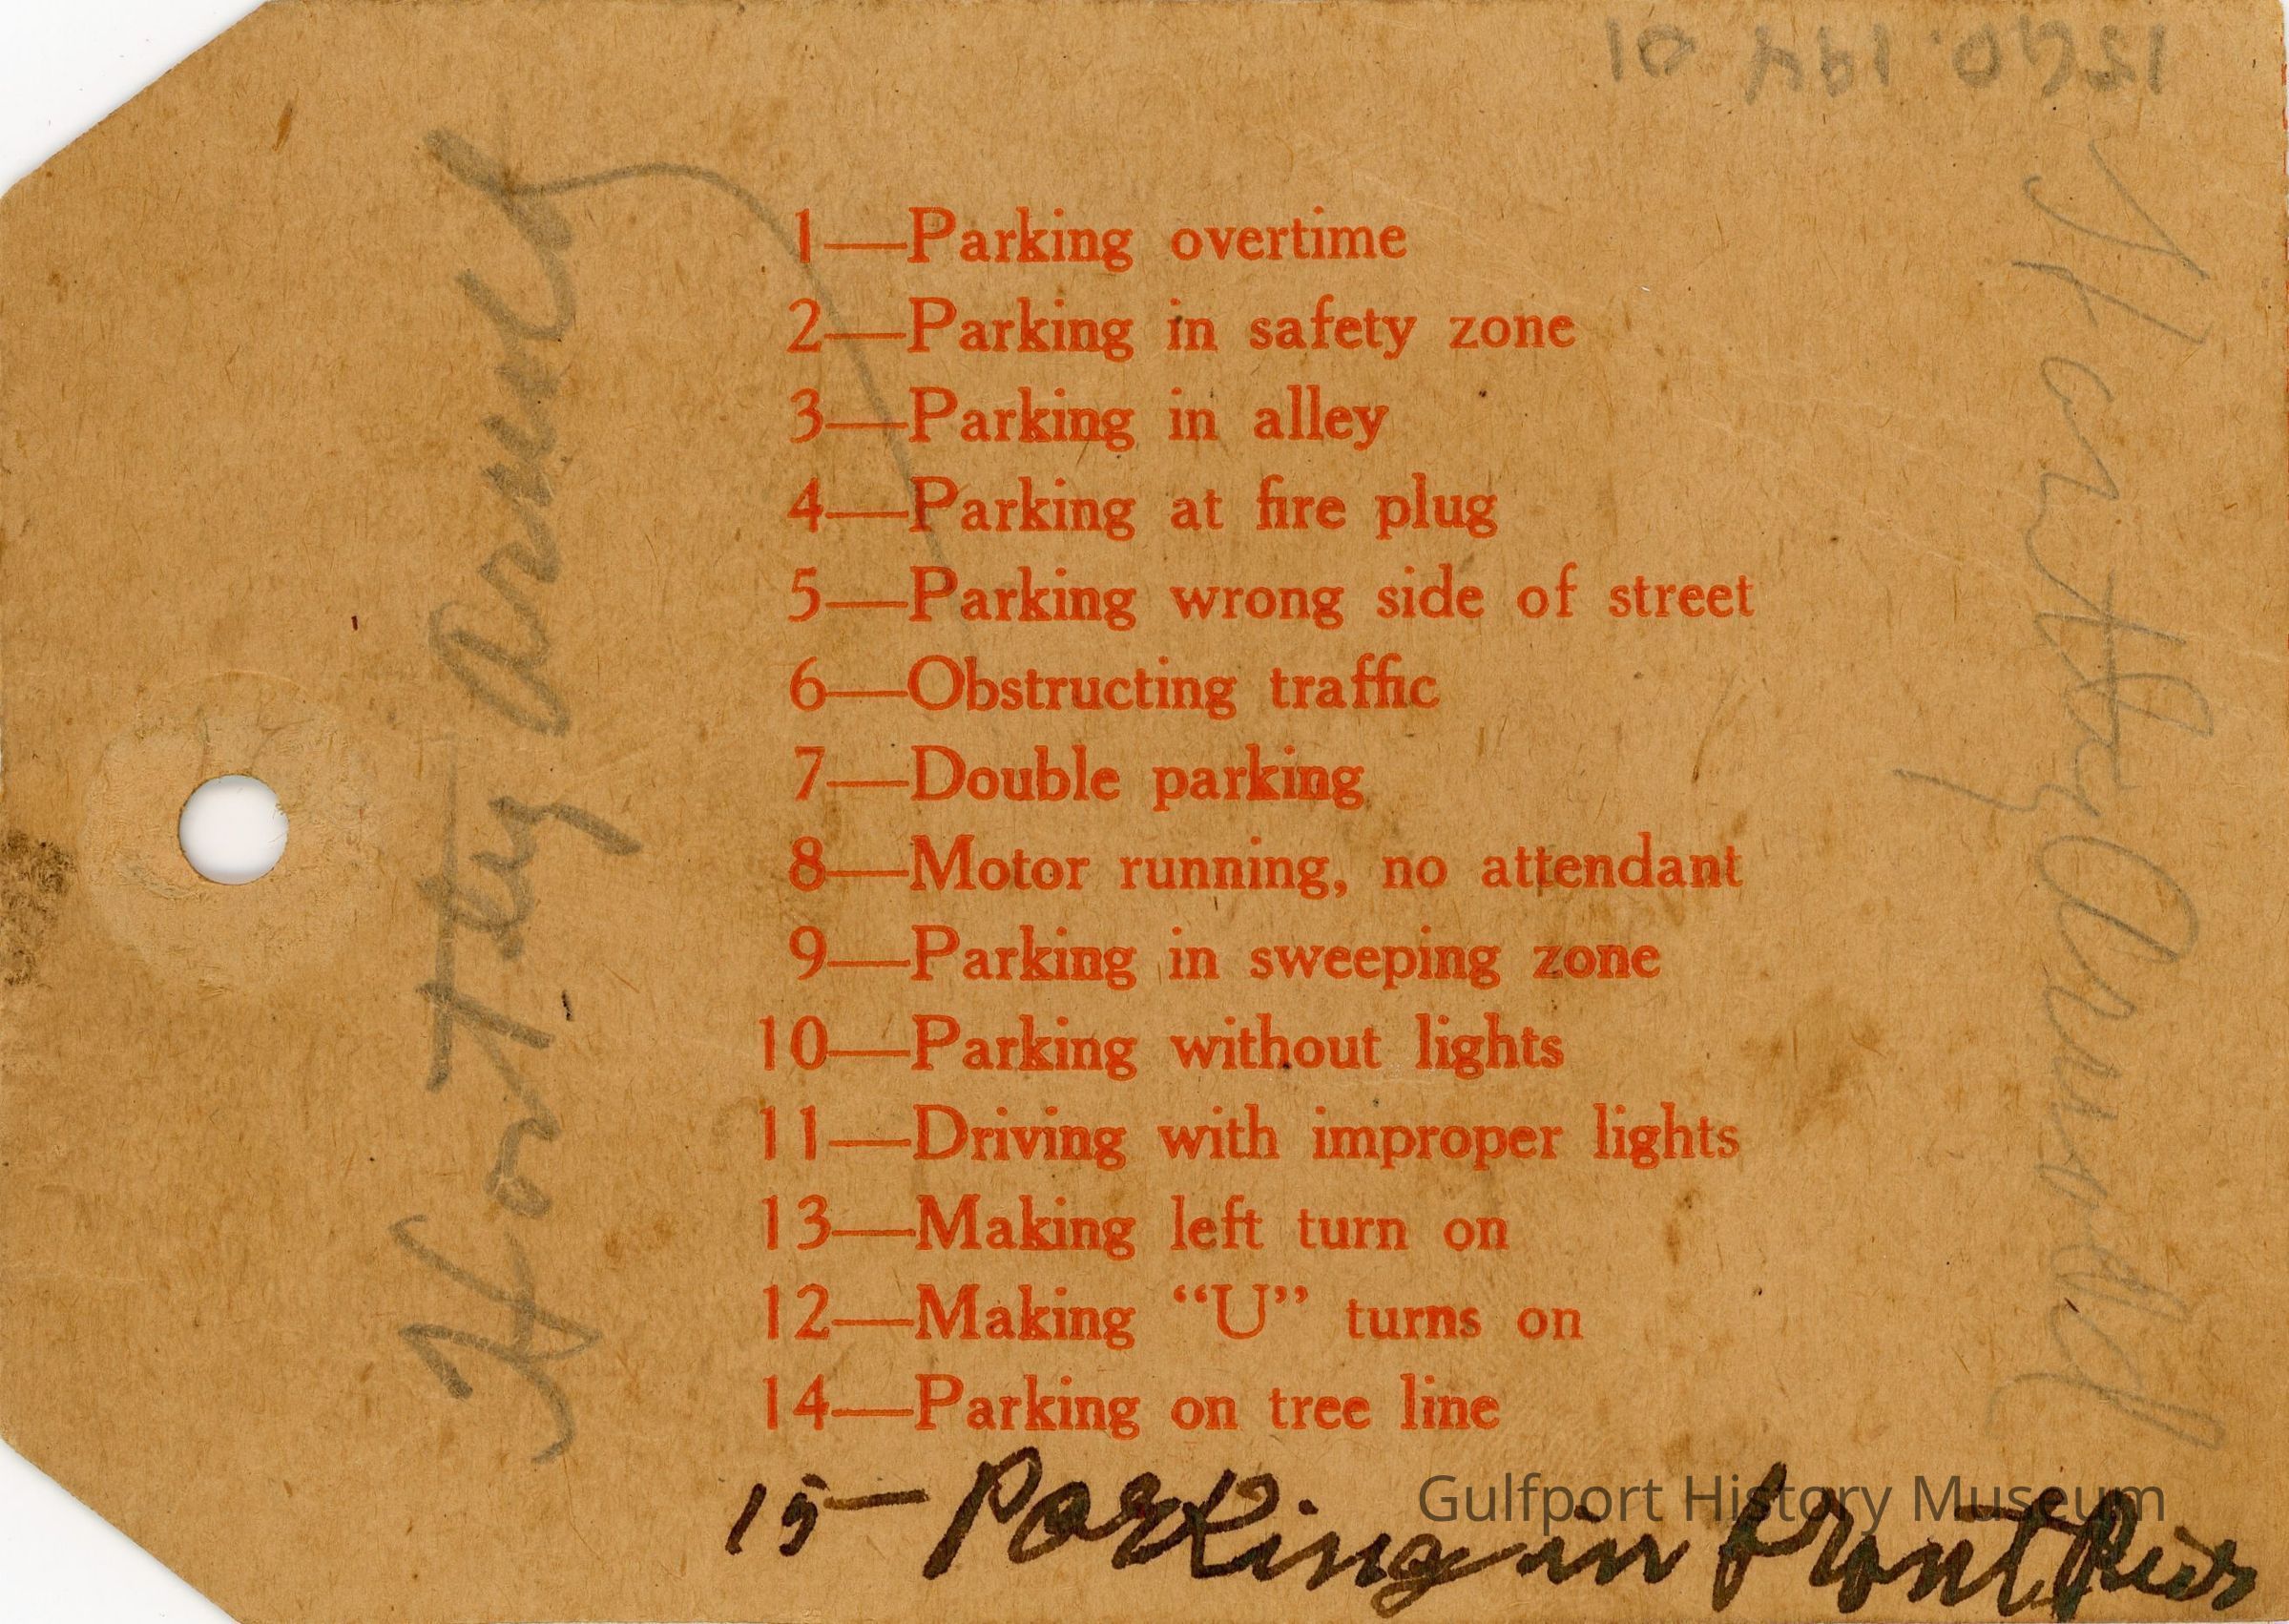 1—Parking overtime
2—Parking in safety zone
3—Parking in alley
4—Parking at fire plug
5—Parking wrong side of street
6—Obstructing traffic
7—Double parking
8—Motor running, no attendant
9—Parking in sweeping zone
10—Parking without lights
11—Driving with improper lights
13—Making left turn on
12—Making “U” turns on
14—Parking on tree line
15—Parking in front
Gulfport History Museum